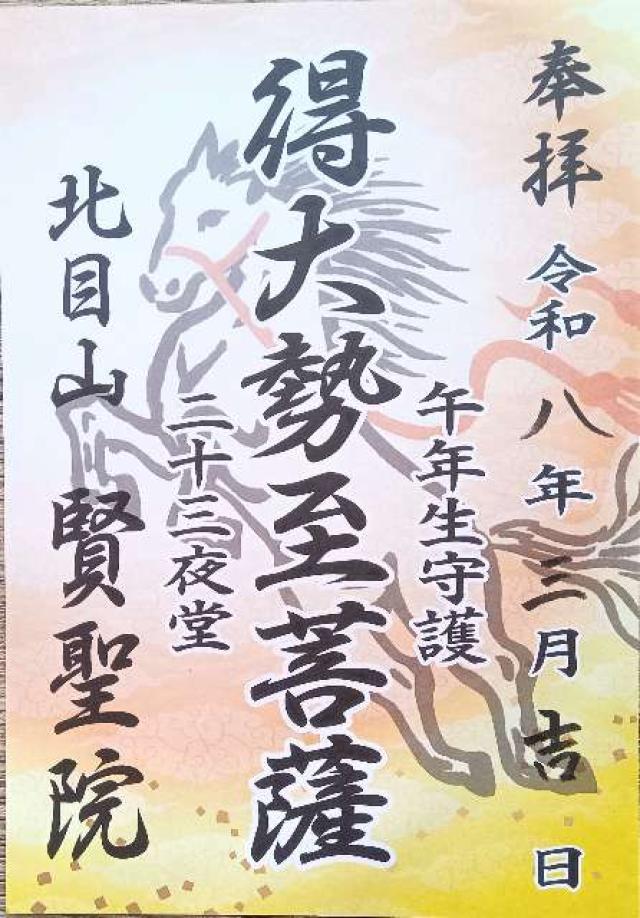 奉拝 令和八年三月吉日
午年生守護
得大勢至菩薩
二十三夜堂
北目山 賢聖院